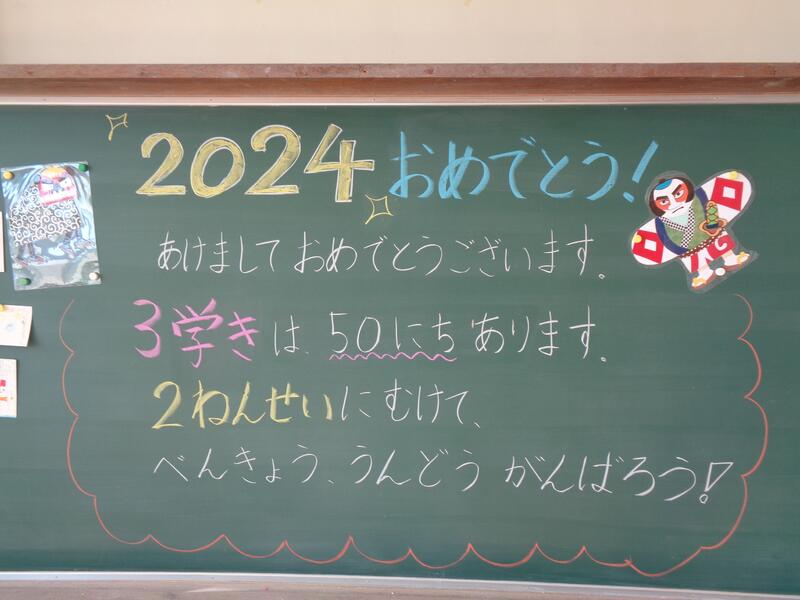 2024 おめでとう!
あけましておめでとうございます。
3学きは、50にちあります。
2ねんせいにむけて、
べんきょう、うんどう がんばろう!